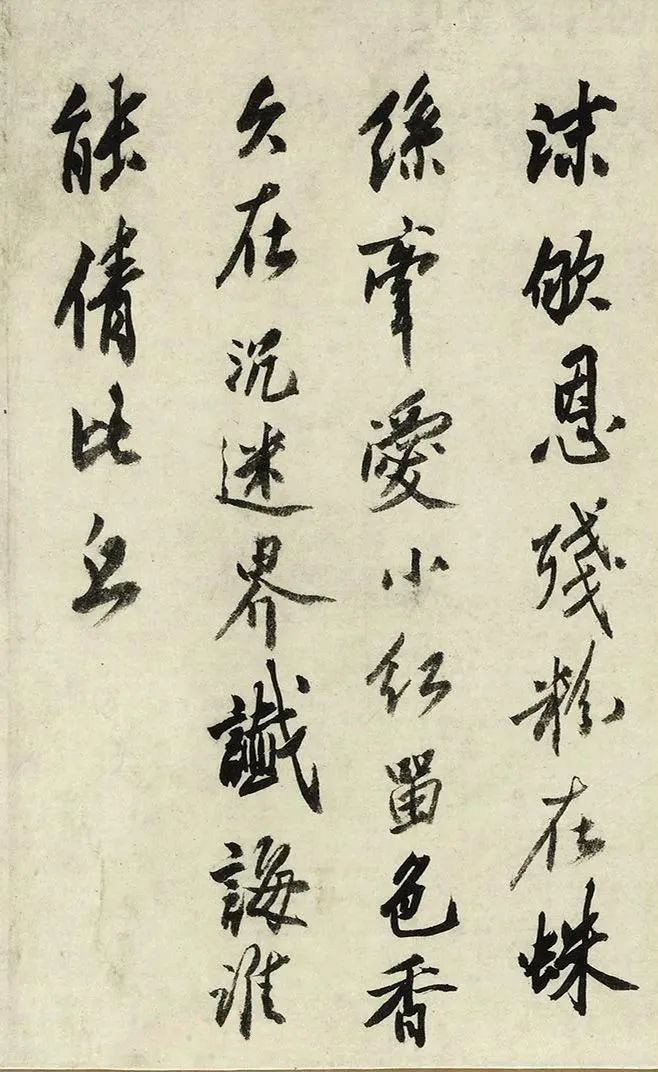 沫恩殘粉在蛛
絲牽愛小紅留色香
久在沉迷界讖誨誰
能倩比丘